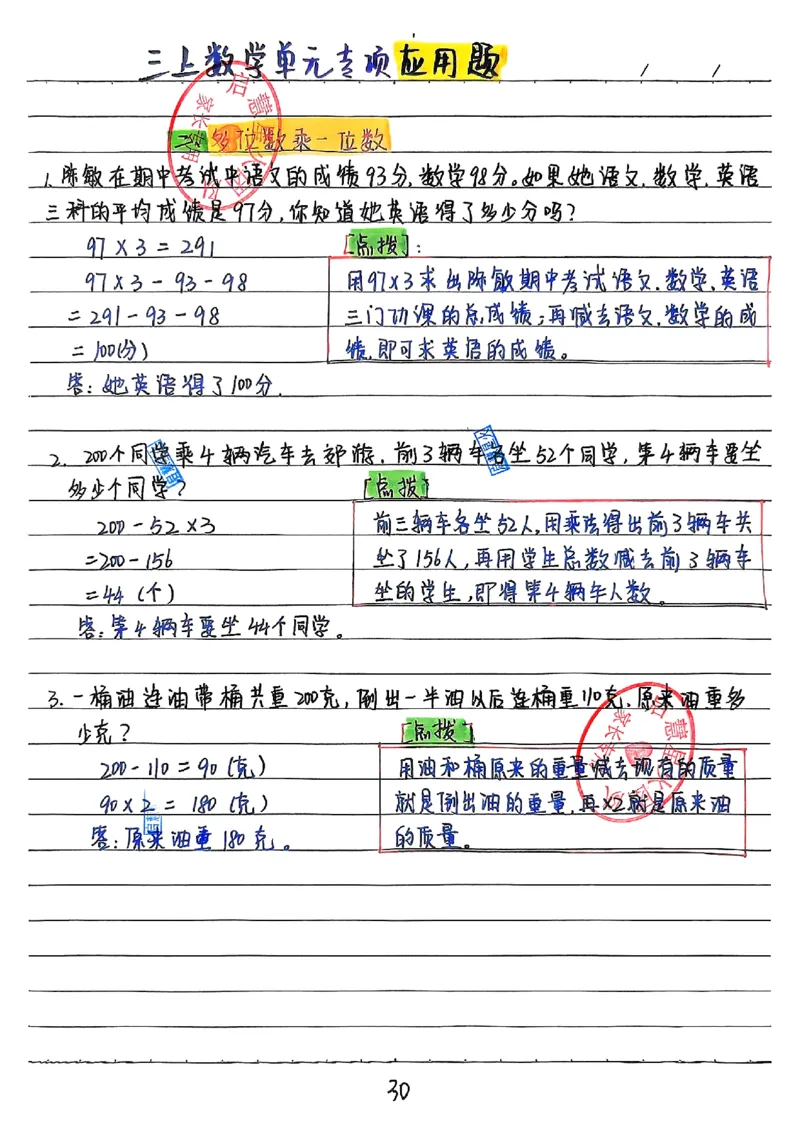 三上数学单元专项应用题
六、多位数乘一位数
1.陈敏在期中考试中语文的成绩93分,数学98分。如果她语文.数学.英语
三科的平均成绩是97分,你知道她英语得了多少分吗?
97×3=291
[点拨]:
97×3-93-98
用97×3求出陈敏期中考试语文.数学.英语
=291-93-98
三门功课的总成绩;再减去语文.数学的成
=100(分)
绩,即可求英语的成绩。
答:她英语得了100分.
2. 200个同学乘4辆汽车去郊游,前3辆车各坐52个同学,第4辆车要坐
多少个同学?
[点拨]
200-52×3
前三辆车各坐52人,用乘法得出前3辆车共
=200-156
坐了156人,再用学生总数减去前3辆车
=44(个)
坐的学生,即得第4辆车人数。
答:第4辆车要坐44个同学。
3.一桶油连油带桶共重200克,倒出一半油以后连桶重110克.原来油重多
少克?
[点拨]
200-110=90(克)
用油和桶原来的重量减去现有的质量
90×2=180(克)
就是倒出油的重量,再×2就是原来油
答:原来油重180克。
的质量。
30